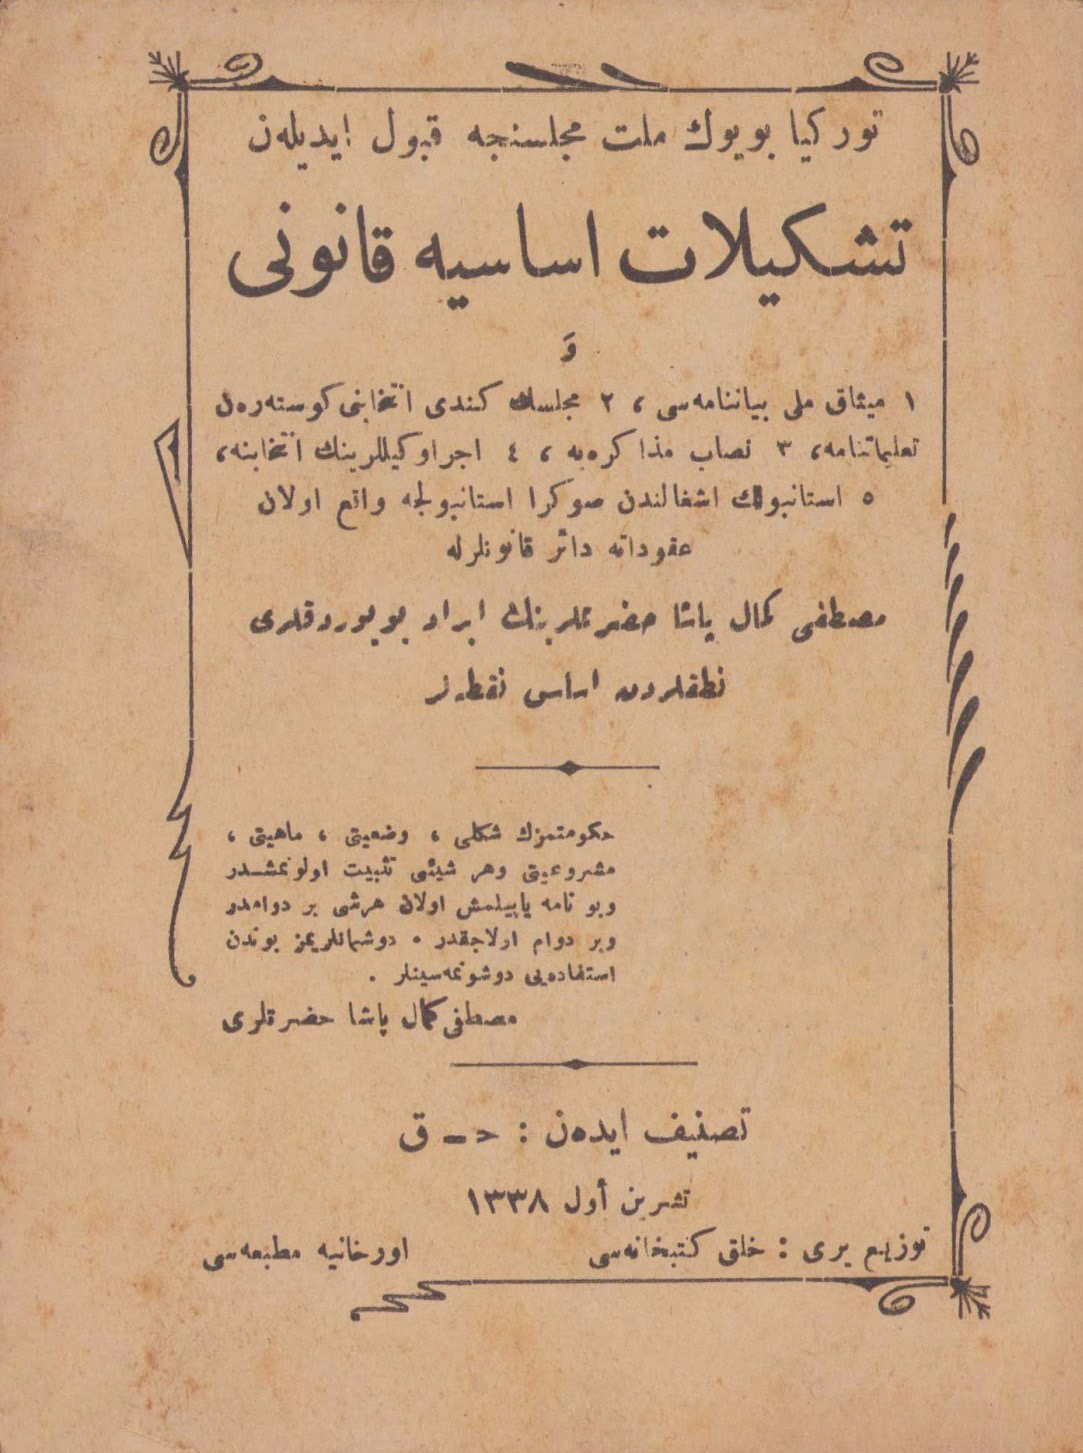 توركيا بويوك ملت مجلسنجه قبول ايديله‌ن
تشكيلات اساسيه قانونى
وَ
١ ميثاق ملى بياننامه‌سى ، ٢ مجلسك كندى انتخابنى كوستره‌ن
تعليماتنامه، ٣ نصاب مذاكره‌يه ، ٤ اجرا وكيللرينك انتخابنه،
٥ استانبولك اشغالندن صوكرا استانبولجه واقع اولان
عقوداته دائر قانونلرله
مصطفى كمال پاشا حضرتلرينك ايراد بويوردقلرى
نطقلردن اساسى نقطه‌لر
حكومتمزك شكلى ، وضعيتى ، ماهيتى ،
مشروعيتى وهر شيئى تثبيت اولونمشدر
وبو نامه ياپيلمش اولان هرشى بر دوامدر
وبر دوام اولاجقدر . دوشمانلريمز بوندن
استفاده‌يى دوشونمه‌سينلر .
مصطفى كمال پاشا حضرتلرى
تصنيف ايده‌ن : ح ــ ق
تشرين أول ١٣٣٨
توزيع يرى : خلق كتبخانه‌سى
اورخانيه مطبعه‌سى